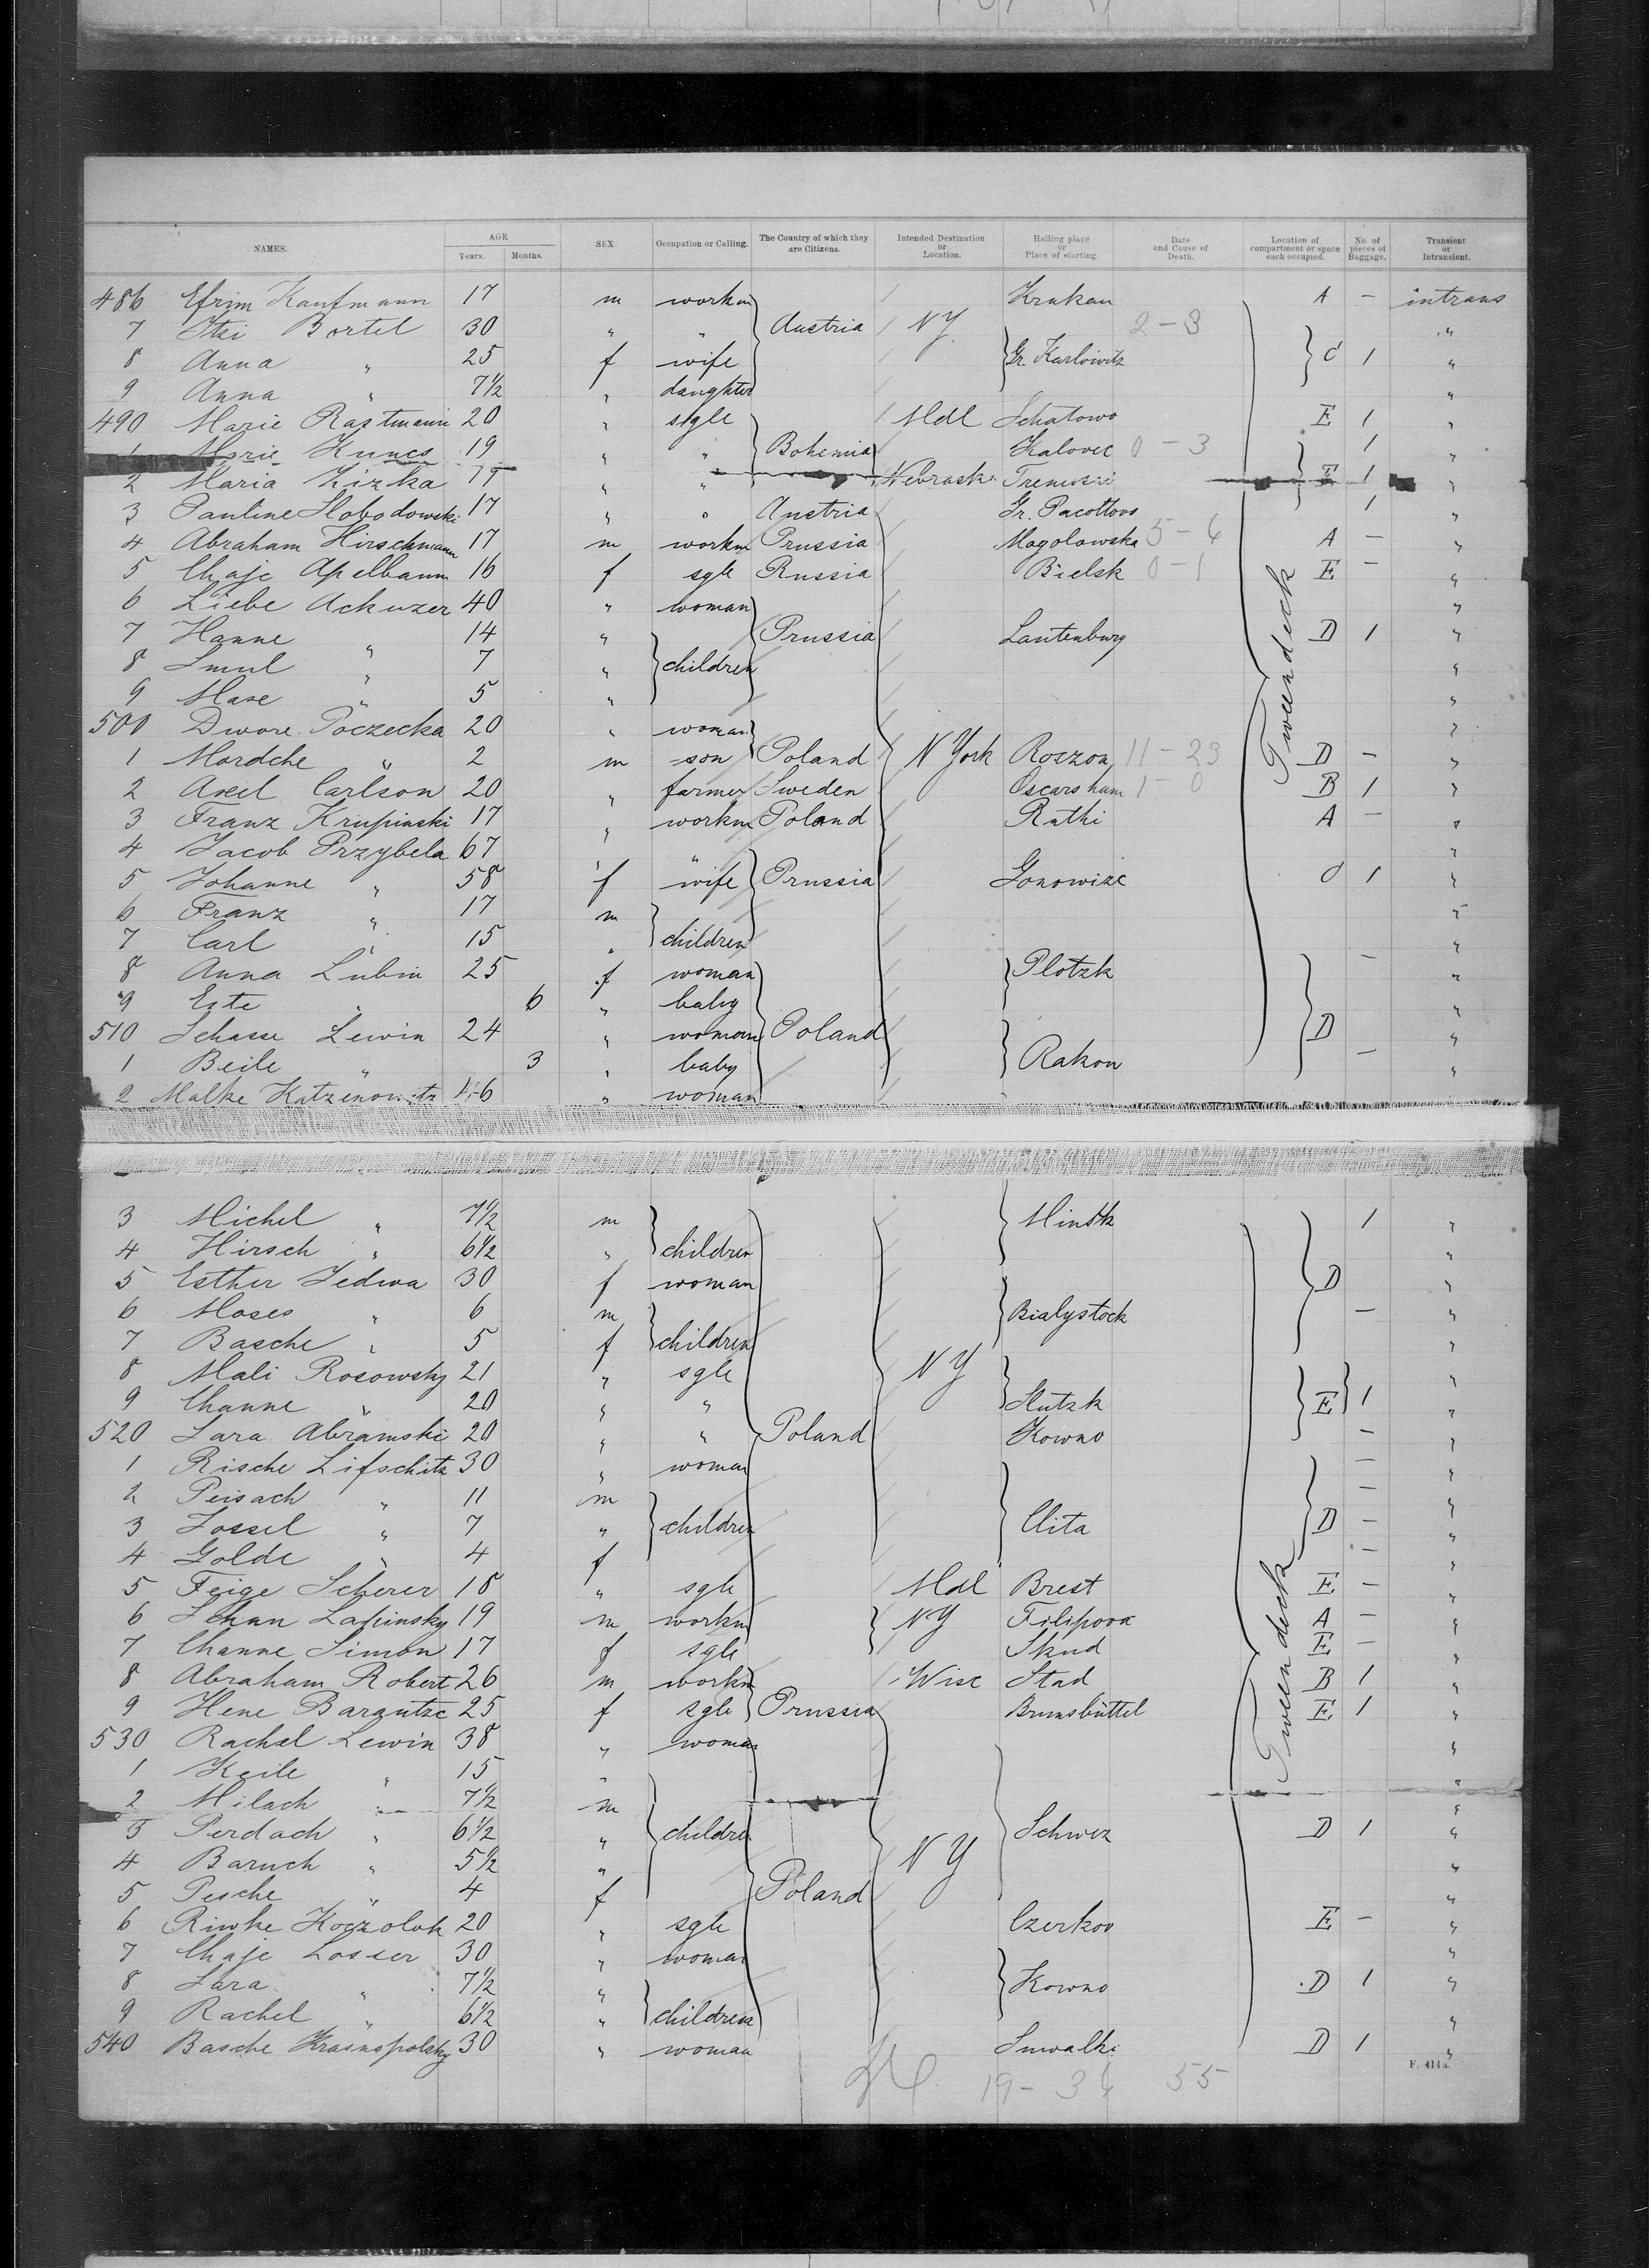 NAMES. AGE Years. Months. SEX Occupation or Calling. The Country of which they are Citizens. Intended Destination or Location. Hailing place or Place of starting. Date and Cause of Death. Location of compartment or space each occupied. No. of pieces of Baggage. Transient or Intransient.
486 Efrim Kaufmann 17 m workm Krakau A - intrans
7 Itzi Bortel 30 " " Austria NY 2-3 "
8 Anna " 25 f wife Gr. Karlowitz C 1 "
9 Anna " 7½ " daughter "
490 Marie Rastmann 20 " sgle Mdl Schatowo E 1 "
1 Marie Kunes 19 " " Bohemia Kalovec 0-3 1 "
2 Maria Zizka 17 " " Nebraska E 1 "
3 Pauline Slobodowski 17 " " Austria 1 "
4 Abraham Hirschmann 17 m workm Prussia Mogolowska 5-6 A - "
5 Chaje Apelbaum 16 f sgle Russia Bielsk 0-1 E - "
6 Liebe Ackuzer 40 " woman "
7 Hanne " 14 " Prussia Lautenburg D 1 "
8 Smul " 7 " children "
9 Mase " 5 " "
500 Dwore Poczecka 20 " woman "
1 Mordche " 2 m son Poland N York Roczon 11-23 D - "
2 Axel Carlson 20 " farmer Sweden Oscarsham 1-0 B 1 "
3 Franz Krupinski 17 " workm Poland Rathi A - "
4 Jacob Przybela 67 " " "
5 Johanne " 58 f wife Prussia Gonowize C 1 "
6 Franz " 17 m "
7 Carl " 15 " children "
8 Anna Lubin 25 f woman Plotzk - "
9 Este " 6 " baby "
510 Schasse Lewin 24 " woman Poland D "
1 Beile " 3 " baby Rakow - "
2 Malke Katzenowitz 46 " woman
Tween deck
3 Michel " 7½ m Minsk 1 "
4 Hirsch " 6½ " children "
5 Esther Jedwa 30 f woman D "
6 Moses " 6 m Bialystock - "
7 Basche " 5 f children "
8 Mali Rosowsky 21 " sgle NY "
9 Channe " 20 " " Slutzk E 1 "
520 Sara Abramski 20 " " Poland Kowno - "
1 Rische Lifschitz 30 " woman - "
2 Peisach " 11 m - "
3 Jossel " 7 " children Clita D - "
4 Golde " 4 f - "
5 Feige Scherer 18 " sgle Mdl Brest E - "
6 Schan Lapinsky 19 m workm NY Filipova A - "
7 Channe Simon 17 f sgle Skud E - "
8 Abraham Robert 26 m workm Wisc Stad B 1 "
9 Hene Barantze 25 f sgle Prussia Brunsbüttel E 1 "
530 Rachel Lewin 38 " woman "
1 Keile " 15 " "
2 Milach " 7½ m "
3 Perdach " 6½ " children Schwez D 1 "
4 Baruch " 5½ " NY "
5 Pesche " 4 f Poland "
6 Riwke 20 " sgle Czerkov E - "
7 Chaje Losser 30 " woman "
8 Sara " 7½ " Kowno D 1 "
9 Rachel " 6½ " children "
540 Basche Krasnopolsky 30 " woman Suwalki D 1 "
Tween deck
19-36 55
F. 411a.